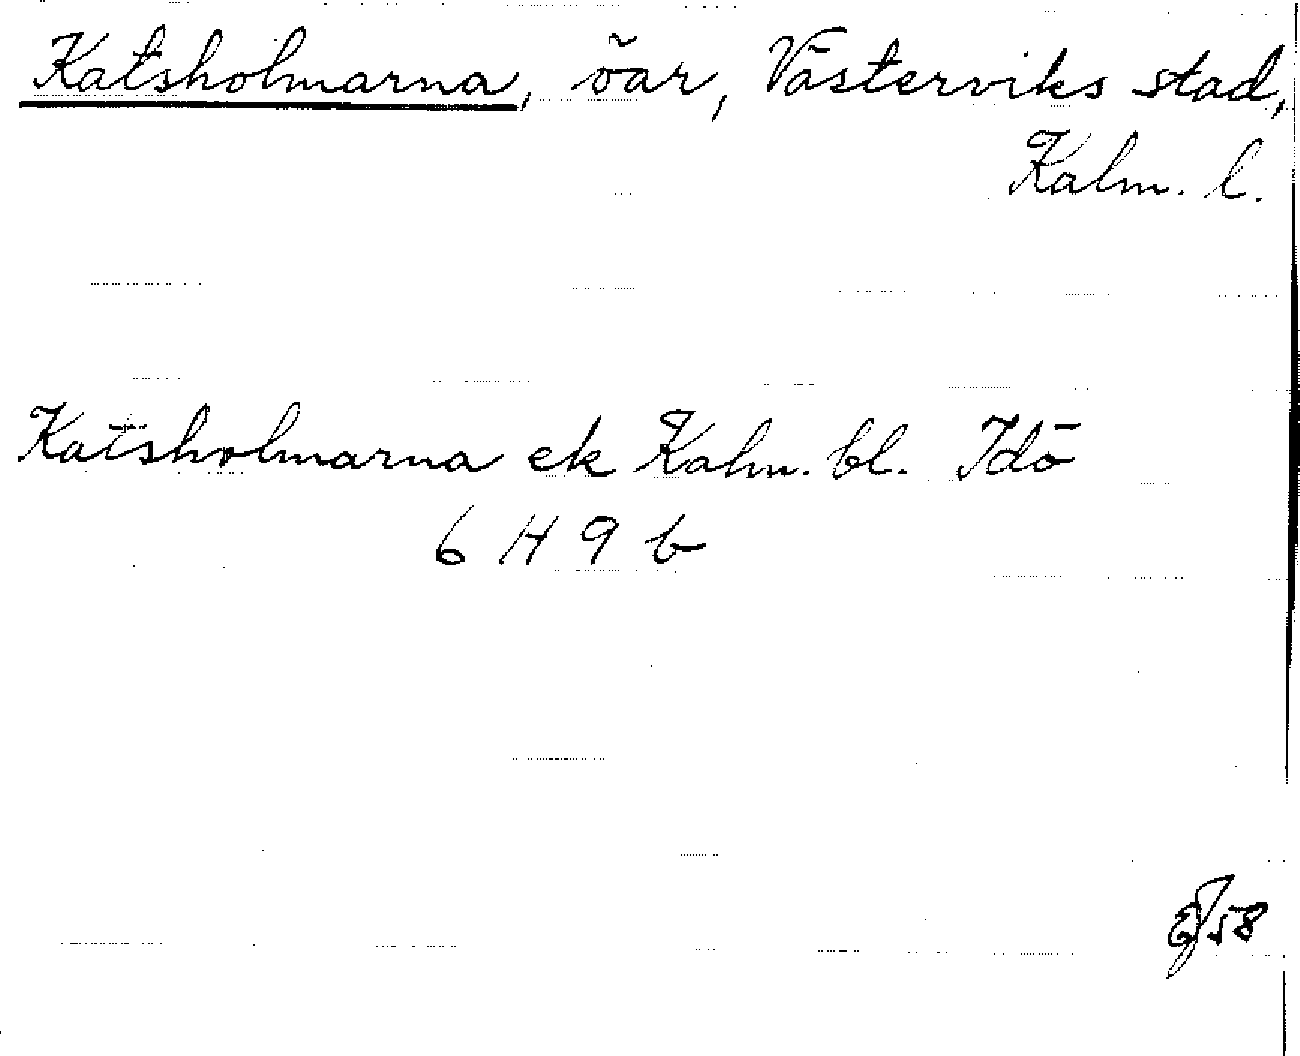 Katsholmarna, öar, Västerviks stad,
Kalm. l.
Katsholmarna ek Kalm. bl. Idö
6 H 9 b
58